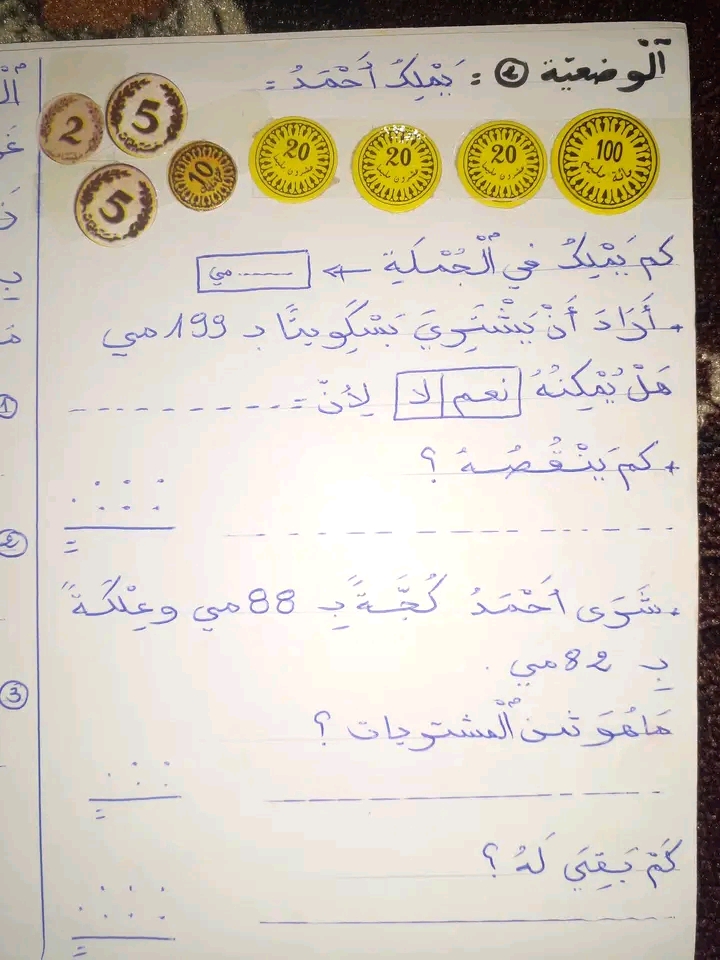 اَلْوضعيّة ② : يَمْلِكُ أَحْمَدُ :
2 5 20 20 20 100
عشرون مليما عشرون مليما عشرون مليما مائة مليم
5 10
كم يَمْلِكُ في الْجُمْلَةِ ← ........ مي
أَرَادَ أَنْ يَشْتَرِيَ بَسْكِويتًا بـ 199 مي
هَلْ يُمْكِنُهُ نعم لا لِأنّ :
+ كم يَنْقُصُهُ ؟
=
. شَرَى أَحْمَدُ كُجَّةً بِـ 88 مي وعِلْكَةً
بِـ 82 مي .
مَا هُوَ ثمن الْمشتريات ؟
=
كَمْ بَقِيَ لَهُ ؟
=
①
②
③